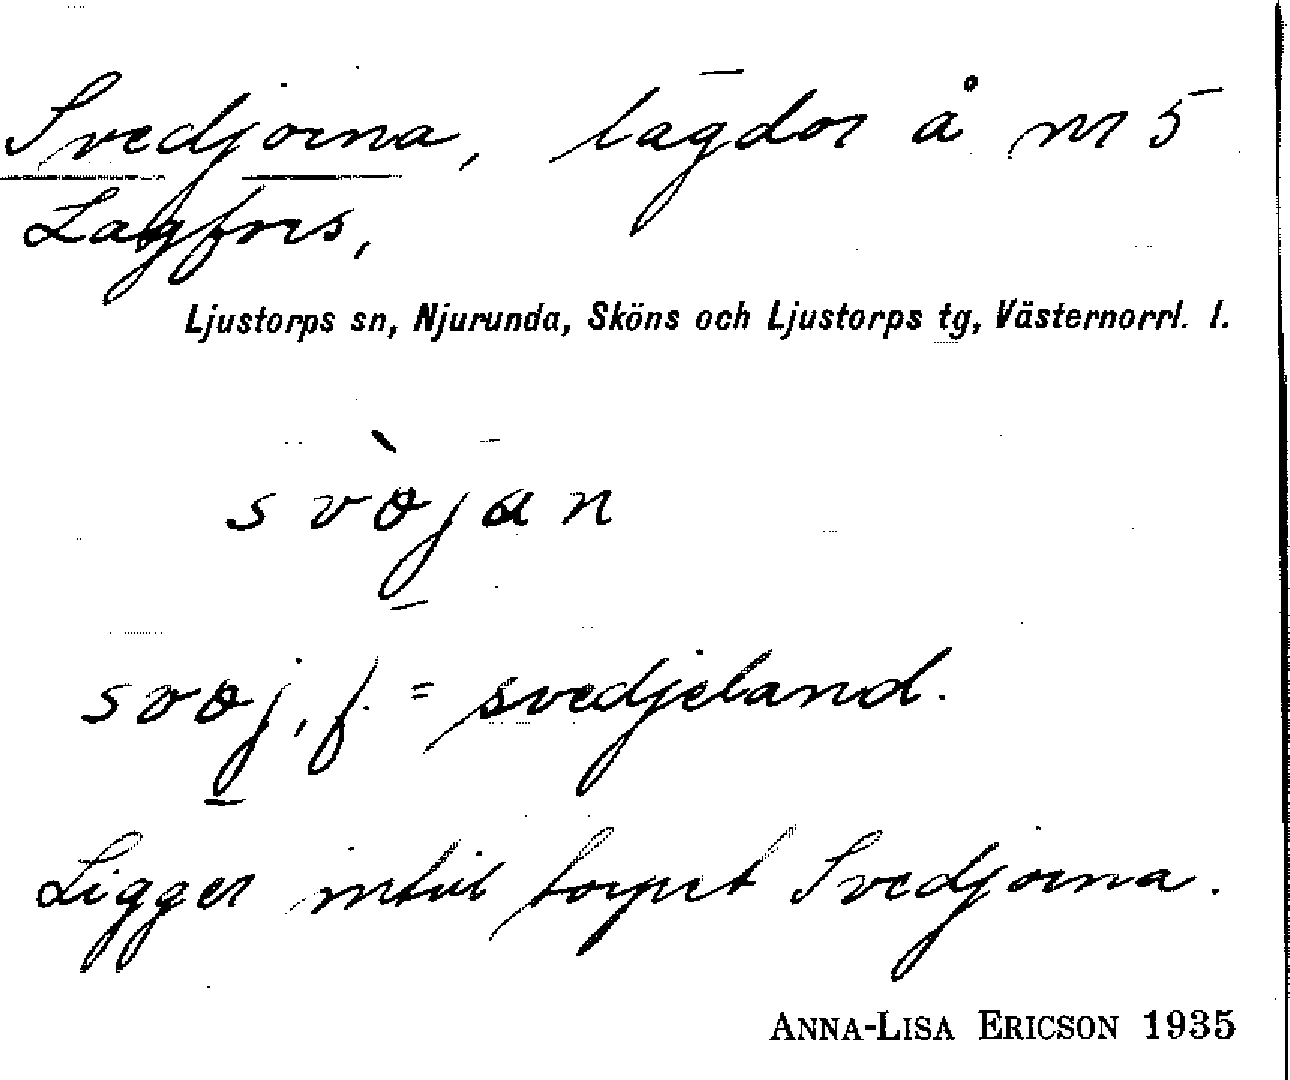 Svedjorna, lägdor å nr 5
Lagfors,
Ljustorps sn, Njurunda, Sköns och Ljustorps tg, Västernorrl. l.
svö̀jan
svöj, f. = svedjeland.
Ligger intill torpet Svedjorna.
ANNA-LISA ERICSON 1935